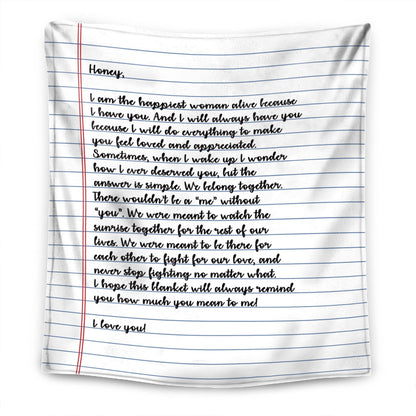 Honey,
I am the happiest woman alive because
I have you. And I will always have you
because I will do everything to make
you feel loved and appreciated.
Sometimes, when I wake up I wonder
how I ever deserved you, but the
answer is simple. We belong together.
There wouldn't be a "me" without
"you". We were meant to watch the
sunrise together for the rest of our
lives. We were meant to be there for
each other to fight for our love, and
never stop fighting no matter what.
I hope this blanket will always remind
you how much you mean to me!
I love you!